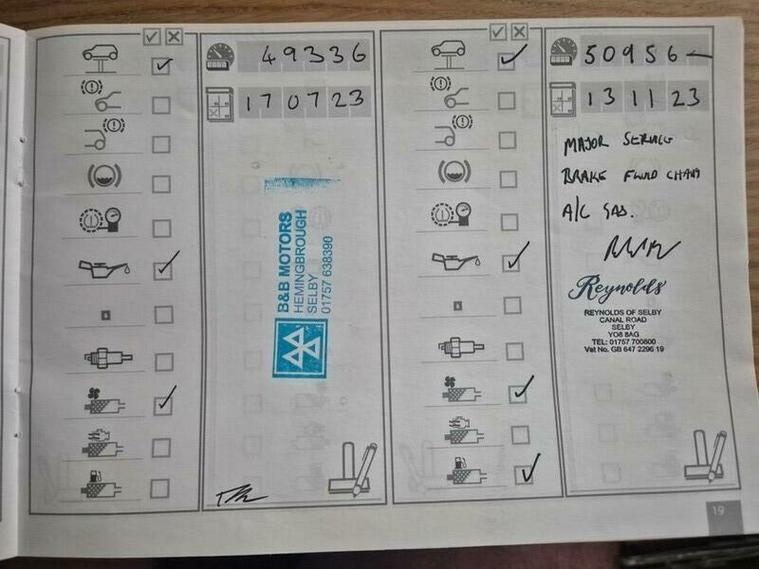 49336
170723
B&B MOTORS
HEMINGBROUGH
SELBY
01757 638390
50956
131123
MAJOR SERVICE
BRAKE FLUID CHANG
A/C GAS.
Reynolds
REYNOLDS OF SELBY
CANAL ROAD
SELBY
YO8 8AG
TEL: 01757 700800
Vat No. GB 647 2296 19
19